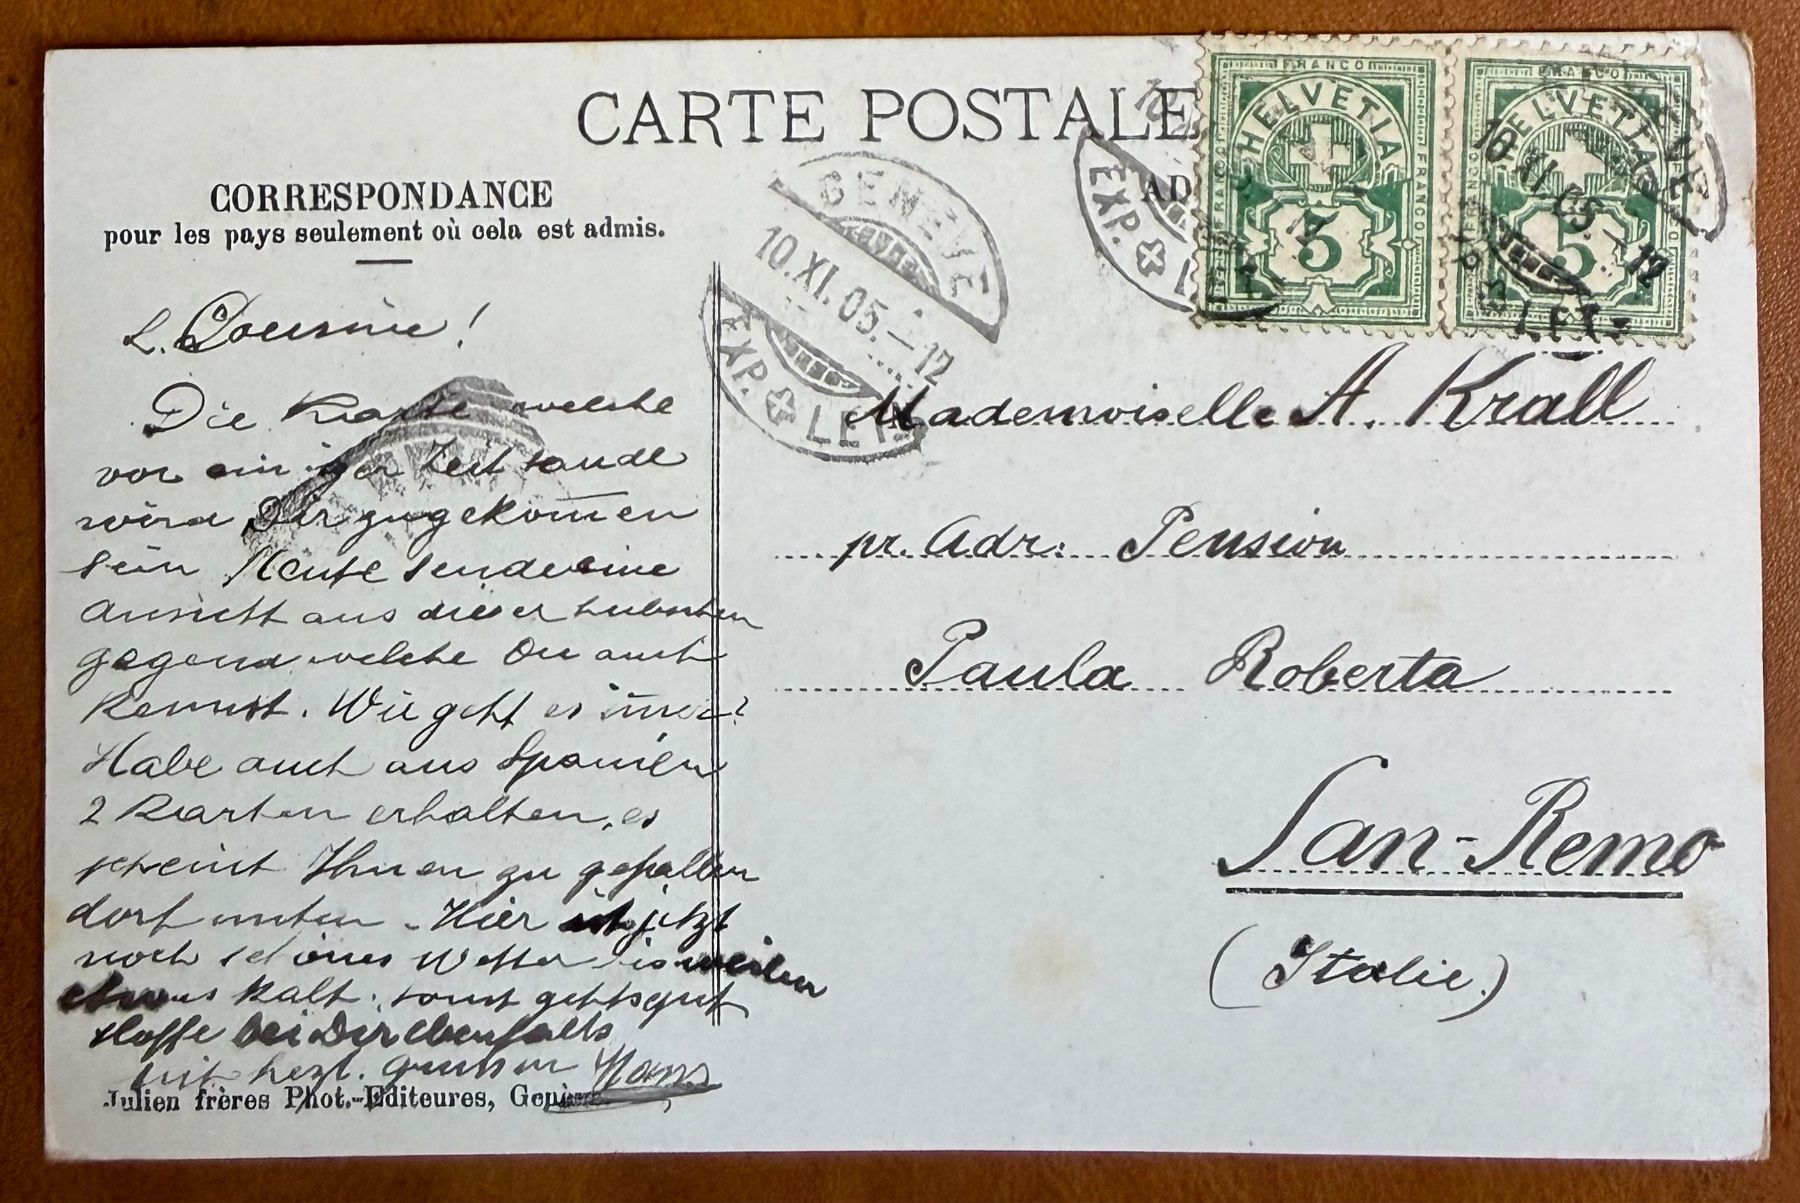 CARTE POSTALE
CORRESPONDANCE
pour les pays seulement où cela est admis.
AD
FRANCO
HELVETIA
FRANCO
FRANCO
5
FRANCO
HELVETIA
5
GENÈVE
10.XI.05.–12
EXP. LETT.
EXP. L
10.XI.05.–12
LETT.
L. Cousine!
Die Karte welche
vor einiger Zeit sandte
wird Dir zugekom̄en
sein Heute sende eine
Ansicht aus dieser hübschen
Gegend welche Du auch
kennst. Wie geht es im̄er?
Habe auch aus Spanien
2 Karten erhalten, es
scheint Ihnen zu gefallen
dort unten. Hier ist jetzt
noch schönes Wetter bisweilen
etwas kalt, sonst gehts gut
Hoffe bei Dir ebenfalls
mit herzl. Grüssen Hans
Julien frères Phot.-Editeures, Genève
Mademoiselle A. Krall
pr. Adr: Pension
Paula Roberta
San-Remo
(Italie.)